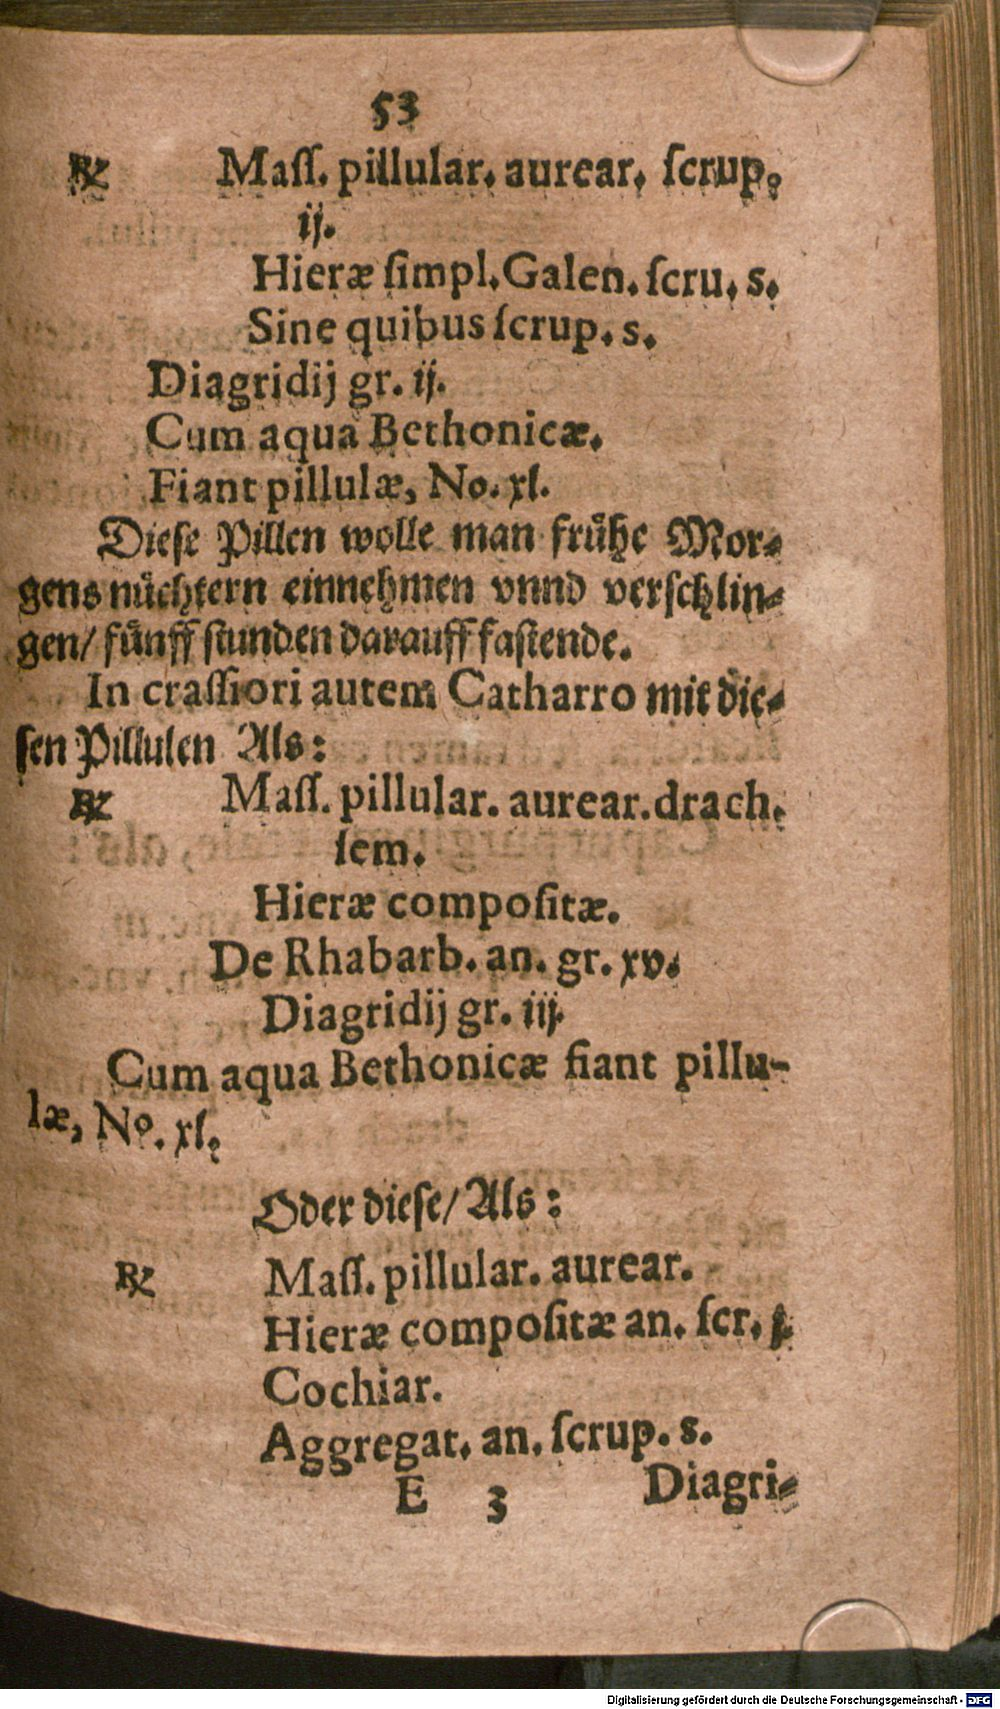 53
℞ Maſſ. pillular. aurear. ſcrup.
ij.
Hieræ ſimpl. Galen. ſcru. s.
Sine quibus ſcrup. s.
Diagridij gr. ij.
Cum aqua Bethonicæ.
Fiant pillulæ, No. xl.
Dieſe Pillen wolle man frühe Mor⸗
gens nüchtern einnehmen vnnd verſchlin⸗
gen/ fünff ſtunden darauff faſtende.
In craſſiori autem Catharro mit die⸗
ſen Pillulen Als:
℞ Maſſ. pillular. aurear. drach.
ſem.
Hieræ compoſitæ.
De Rhabarb. an. gr. xv.
Diagridij gr. iij.
Cum aqua Bethonicæ fiant pillu-
læ, No. xl.
Oder dieſe/ Als:
℞ Maſſ. pillular. aurear.
Hieræ compoſitæ an. ſcr. j.
Cochiar.
Aggregat. an. ſcrup. s.
E 3 Diagri⸗
Digitalisierung gefördert durch die Deutsche Forschungsgemeinschaft - DFG